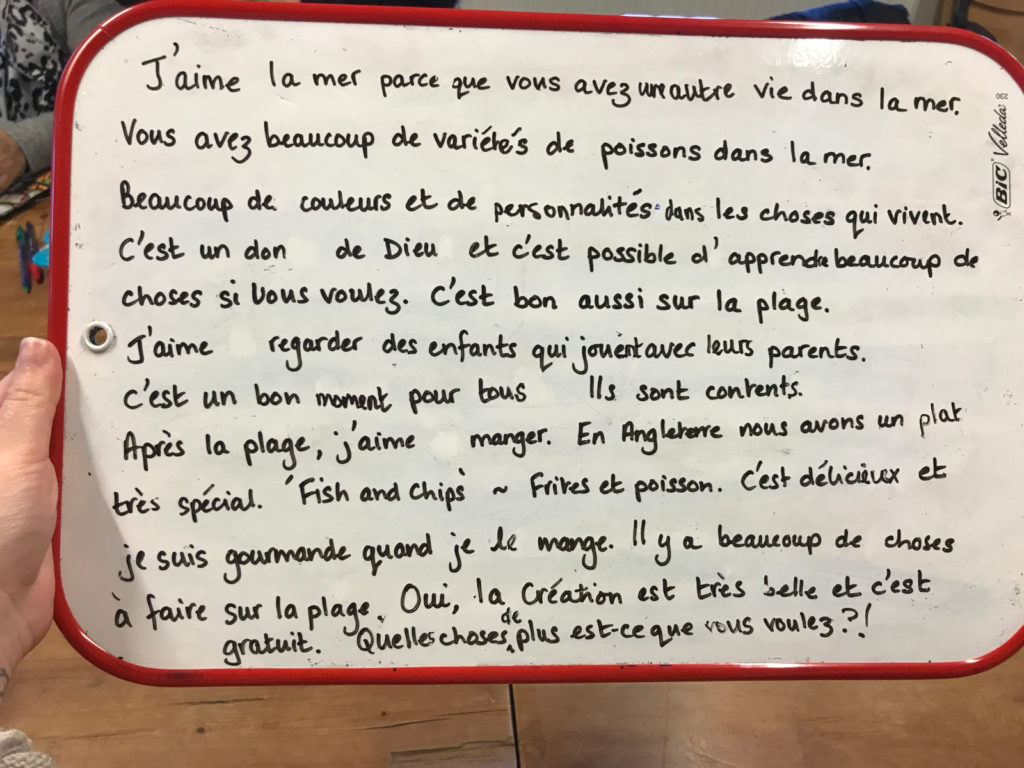 J'aime la mer parce que vous avez une autre vie dans la mer.
Vous avez beaucoup de variétés de poissons dans la mer.
Beaucoup de couleurs et de personnalités dans les choses qui vivent.
C'est un don de Dieu et c'est possible d'apprendre beaucoup de
choses si vous voulez. C'est bon aussi sur la plage.
J'aime regarder des enfants qui jouent avec leurs parents.
C'est un bon moment pour tous Ils sont contents.
Après la plage, j'aime manger. En Angleterre nous avons un plat
très spécial. 'Fish and Chips' ~ Frites et poisson. C'est délicieux et
je suis gourmande quand je le mange. Il y a beaucoup de choses
à faire sur la plage. Oui, la Création est très belle et c'est
gratuit. Quelles choses de plus est-ce que vous voulez?!
BIC Velleda